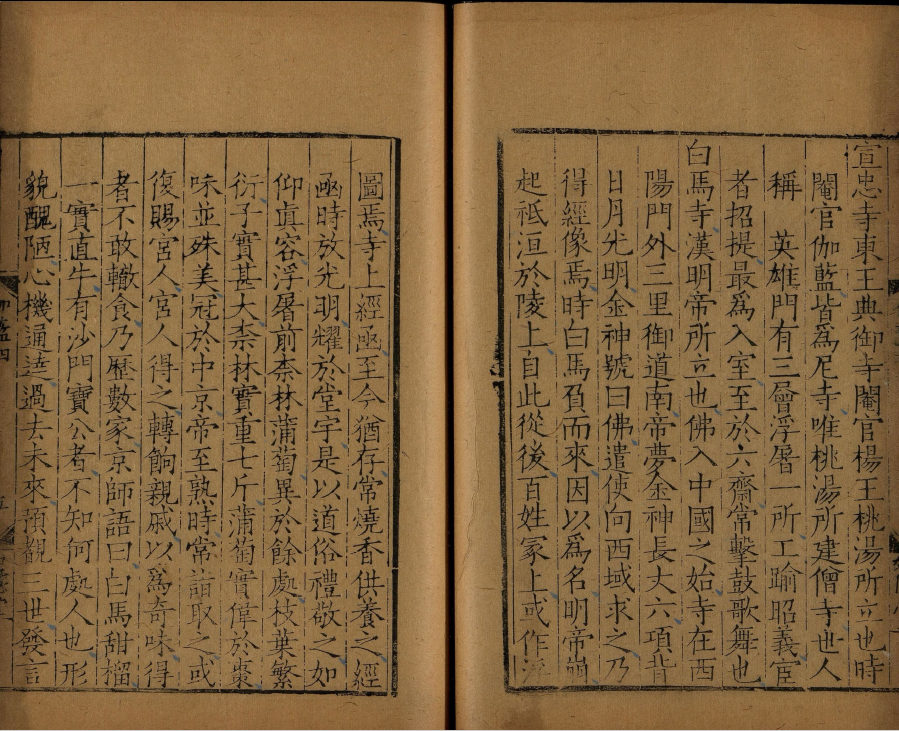 宣忠寺東王典御寺閹官楊王桃湯所立也時
閹官伽藍皆爲尼寺唯桃湯所建僧寺世人
稱　英雄門有三層浮屠一所工踰昭義宦
者招提最爲入室至於六齋常擊鼓歌舞也
白馬寺漢明帝所立也佛入中國之始寺在西
陽門外三里御道南帝夢金神長丈六項背
日月光明金神號曰佛遣使向西域求之乃
得經像焉時白馬負而來因以爲名明帝崩
起祇洹於陵上自此從後百姓冢上或作浮
圖焉寺上經函至今猶存常燒香供養之經
函時放光明耀於堂宇是以道俗禮敬之如
仰眞容浮屠前柰林蒲萄異於餘處枝葉繁
衍子實甚大柰林實重七斤蒲萄實偉於棗
味並殊美冠於中京帝至熟時常詣取之或
復賜宮人宮人得之轉餉親戚以爲奇味得
者不敢輙食乃歷數家京師語曰白馬甜榴
一實直牛有沙門寶公者不知何處人也形
貌醜陋心機通達過去未來預覩三世發言